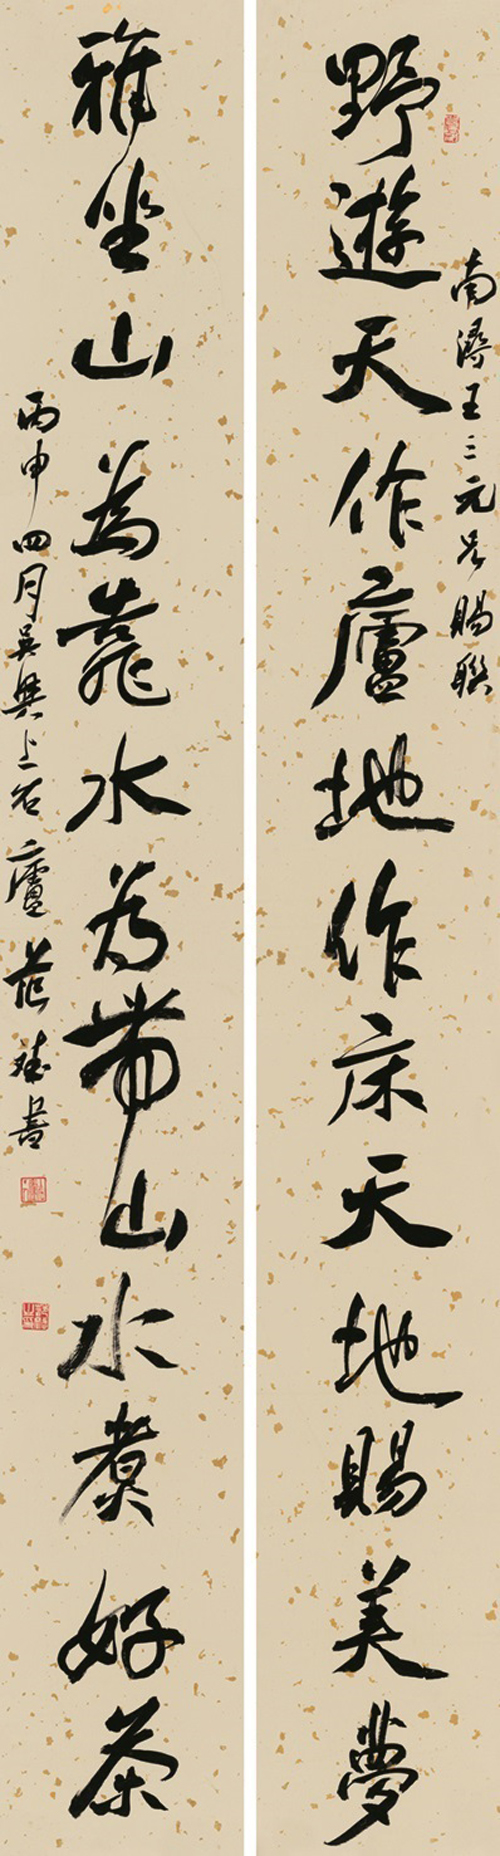 南潯王三元兄賜聯
野遊天作廬地作床天地賜美夢
雅坐山為靠水為帶山水煮好茶
丙申四月吳興上谷廬范斌書